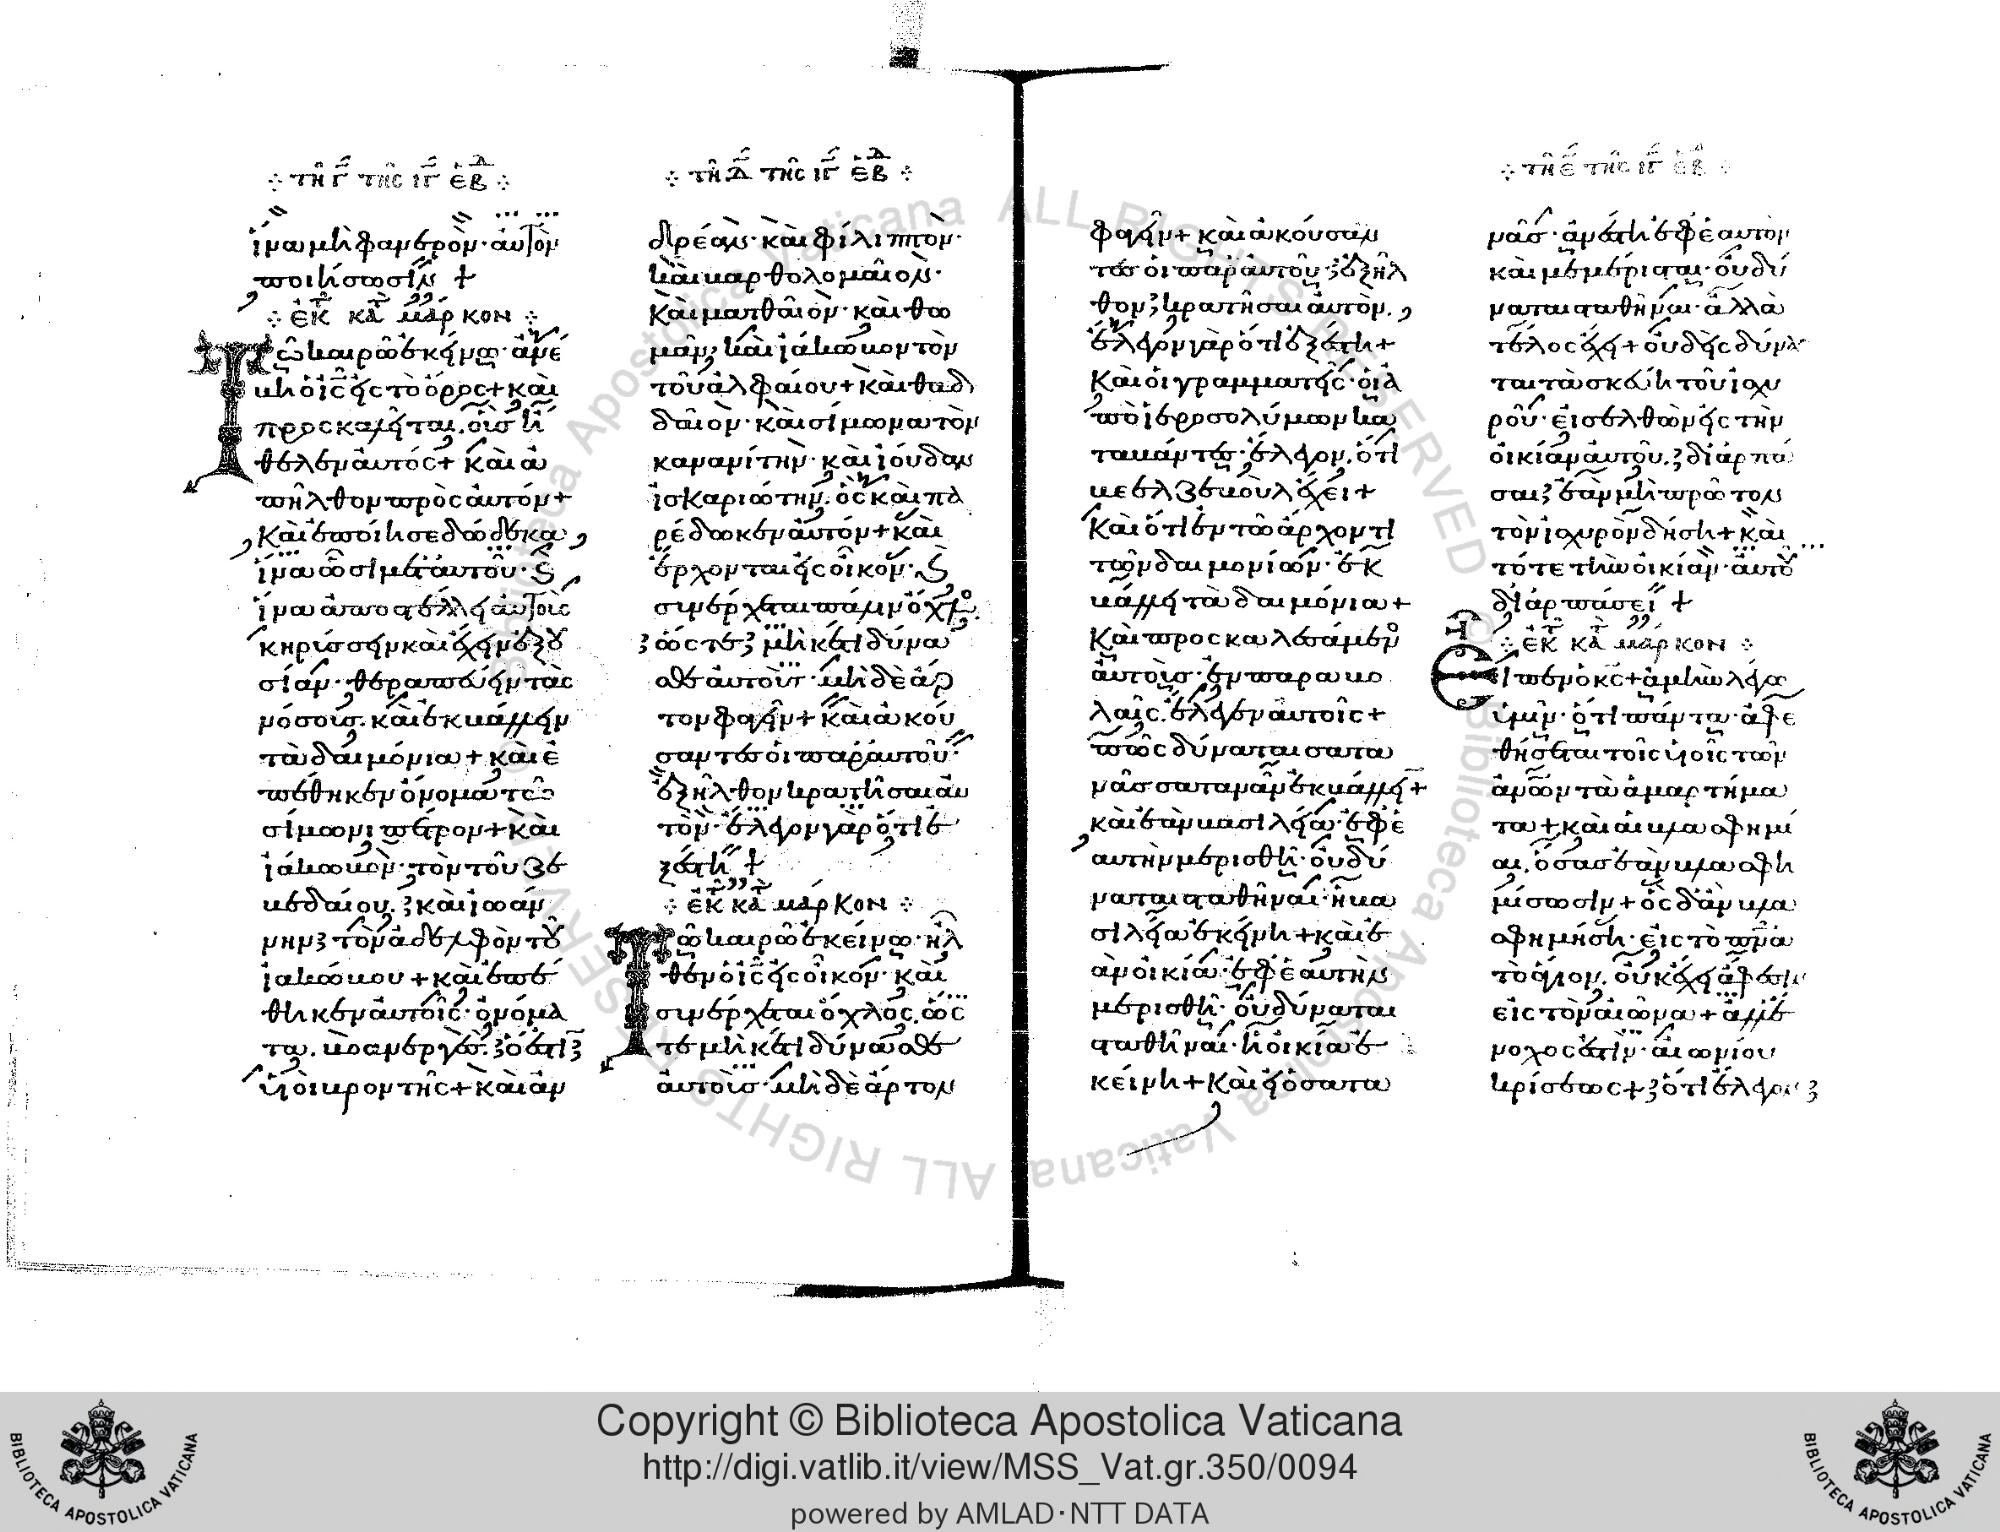 ⁘ τῆ Γ τῆς ιΓ ἑβδ ⁘
ἵνα μὴ φανερὸν αὐτὸν
ποιήσωσιν +
⁘ ἐκ τοῦ κατὰ μάρκον ⁘
Τῶ καιρῶ ἐκείνω· ἀνέ
βη ὁ ις εἰς τὸ ὄρος + καὶ
προσκαλεῖται, οὓς ἤ
θελεν αὐτός + καὶ ἀ
πῆλθον πρὸς αὐτόν +
Καὶ ἐποίησε δώδεκα,
ἵνα ὦσι μετ' αὐτοῦ· ϗ
ἵνα ἀποστέλλη αὐτοὺς
κηρύσσειν καὶ ἔχειν ἐξου
σίαν· θεραπεύειν τὰς
νόσους. καὶ ἐκβάλλειν
τὰ δαιμόνια + καὶ ἐ
πέθηκεν ὄνομα τῶ
σίμωνι πέτρον + καὶ
ἰάκωβον· τὸν τοῦ ζε
βεδαίου. ξ καὶ ἰωάν
νην ξ τὸν ἀδελφὸν τοῦ
ἰακώβου + καὶ ἐπέ
θηκεν αὐτοῖς· ὀνόμα
τα. βοανεργὲς. ξ ὅ ἐστι ξ
υἱοὶ βροντῆς + καὶ ἀν
⁘ τῆ Δ τῆς ιΓ ἑβδ ⁘
δρέαν· καὶ φίλιππον·
καὶ βαρθολομαῖον·
Καὶ ματθαῖον· καὶ θω
μᾶν, καὶ ἰάκωβον τὸν
τοῦ ἀλφαίου + καὶ θαδ
δαῖον· καὶ σίμωνα τὸν
κανανίτην· καὶ ἰούδαν
ἰσκαριώτην. ὃς καὶ πα
ρέδωκεν αὐτόν + καὶ
ἔρχονται εἰς οἶκον. ϗ
συνέρχεται πάλιν ὄχλος.
ξ ὥστε ξ μὴ κέτι δύνα
σθαι αὐτοὺς· μὴ δὲ ἄρ
τον φαγεῖν + καὶ ἀκού
σαντες οἱ παρ' αὐτοῦ·
ἐξῆλθον κρατῆσαι αὐ
τὸν· ἔλεγον γὰρ ὅτι ἐ
ξέστη +
⁘ ἐκ τοῦ κατὰ μάρκον ⁘
Τῶ καιρῶ ἐκείνω· ἦλ
θεν ὁ ις εἰς οἶκον· καὶ
συνέρχεται ὄχλος. ὥς
τε μὴ κέτι δύνασθαι
αὐτοὺς· μὴ δὲ ἄρτον
φαγεῖν + καὶ ἀκούσαν
τες οἱ παρ' αὐτοῦ· ξ ἐξῆλ
θον ξ κρατῆσαι αὐτὸν.
ἔλεγον γὰρ ὅτι ἐξέστη +
Καὶ οἱ γραμματεῖς· οἱ ἀ
πὸ ἱεροσολύμων κα
ταβάντες· ἔλεγον. ὅτι
βεελζεβοὺλ ἔχει +
Καὶ ὅτι ἐν τῶ ἄρχοντι
τῶν δαιμονίων· ἐκ
βάλλει τὰ δαιμόνια +
Καὶ προσκαλεσάμενος
αὐτοὺς· ἐν παραβο
λαῖς. ἔλεγεν αὐτοῖς +
πῶς δύναται σατα
νᾶς σατανᾶν ἐκβάλλειν +
καὶ ἐὰν βασιλεία· ἐφ' ἑ
αυτὴν μερισθῆ· οὐ δύ
ναται σταθῆναι· ἡ βα
σιλεία ἐκείνη + καὶ ἐ
ὰν οἰκία· ἐφ' ἑαυτὴν
μερισθῆ· οὐ δύναται
σταθῆναι· ἡ οἰκία ἐ
κείνη + Καὶ εἰ ὁ σατα
⁘ τῆ Ε τῆς ιΓ ἑβδ ⁘
νᾶς· ἀνέστη ἐφ' ἑαυτὸν
καὶ μεμέρισται· οὐ δύ
ναται σταθῆναι· ἀλλὰ
τέλος ἔχει + οὐδεὶς δύνα
ται τὰ σκεύη τοῦ ἰσχυ
ροῦ· εἰσελθὼν εἰς τὴν
οἰκίαν αὐτοῦ. ξ διαρπά
σαι ξ ἐὰν μὴ πρῶτον
τὸν ἰσχυρὸν δήση + καὶ
τότε τὴν οἰκίαν· αὐτοῦ
διαρπάσει +
⁘ ἐκ τοῦ κατὰ μάρκον ⁘
Εἶπεν ὁ κς + ἀμὴν λέγω
ὑμῖν· ὅτι πάντα· ἀφε
θήσεται τοῖς υἱοῖς τῶν
ανων τὰ ἁμαρτήμα
τα + καὶ αἱ βλασφημί
αι. ὅσας ἐὰν βλασφη
μήσωσιν + ὃς δ' ἂν βλα
σφημήση· εἰς τὸ πνα
τὸ ἅγιον. οὐκ ἔχει ἄφεσιν
εἰς τὸν αἰῶνα + ἀλλ' ἔ
νοχος ἐστὶν· αἰωνίου
κρίσεως + ξ ὅτι ἔλεγον ξ
Copyright © Biblioteca Apostolica Vaticana
http://digi.vatlib.it/view/MSS_Vat.gr.350/0094
powered by AMLAD·NTT DATA
BIBLIOTECA APOSTOLICA VATICANA
BIBLIOTECA APOSTOLICA VATICANA